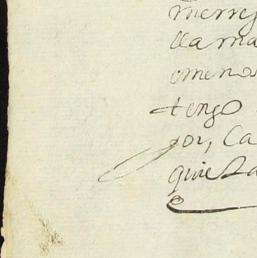 merres
llama
omenos
tengo
por, Ca
quieta